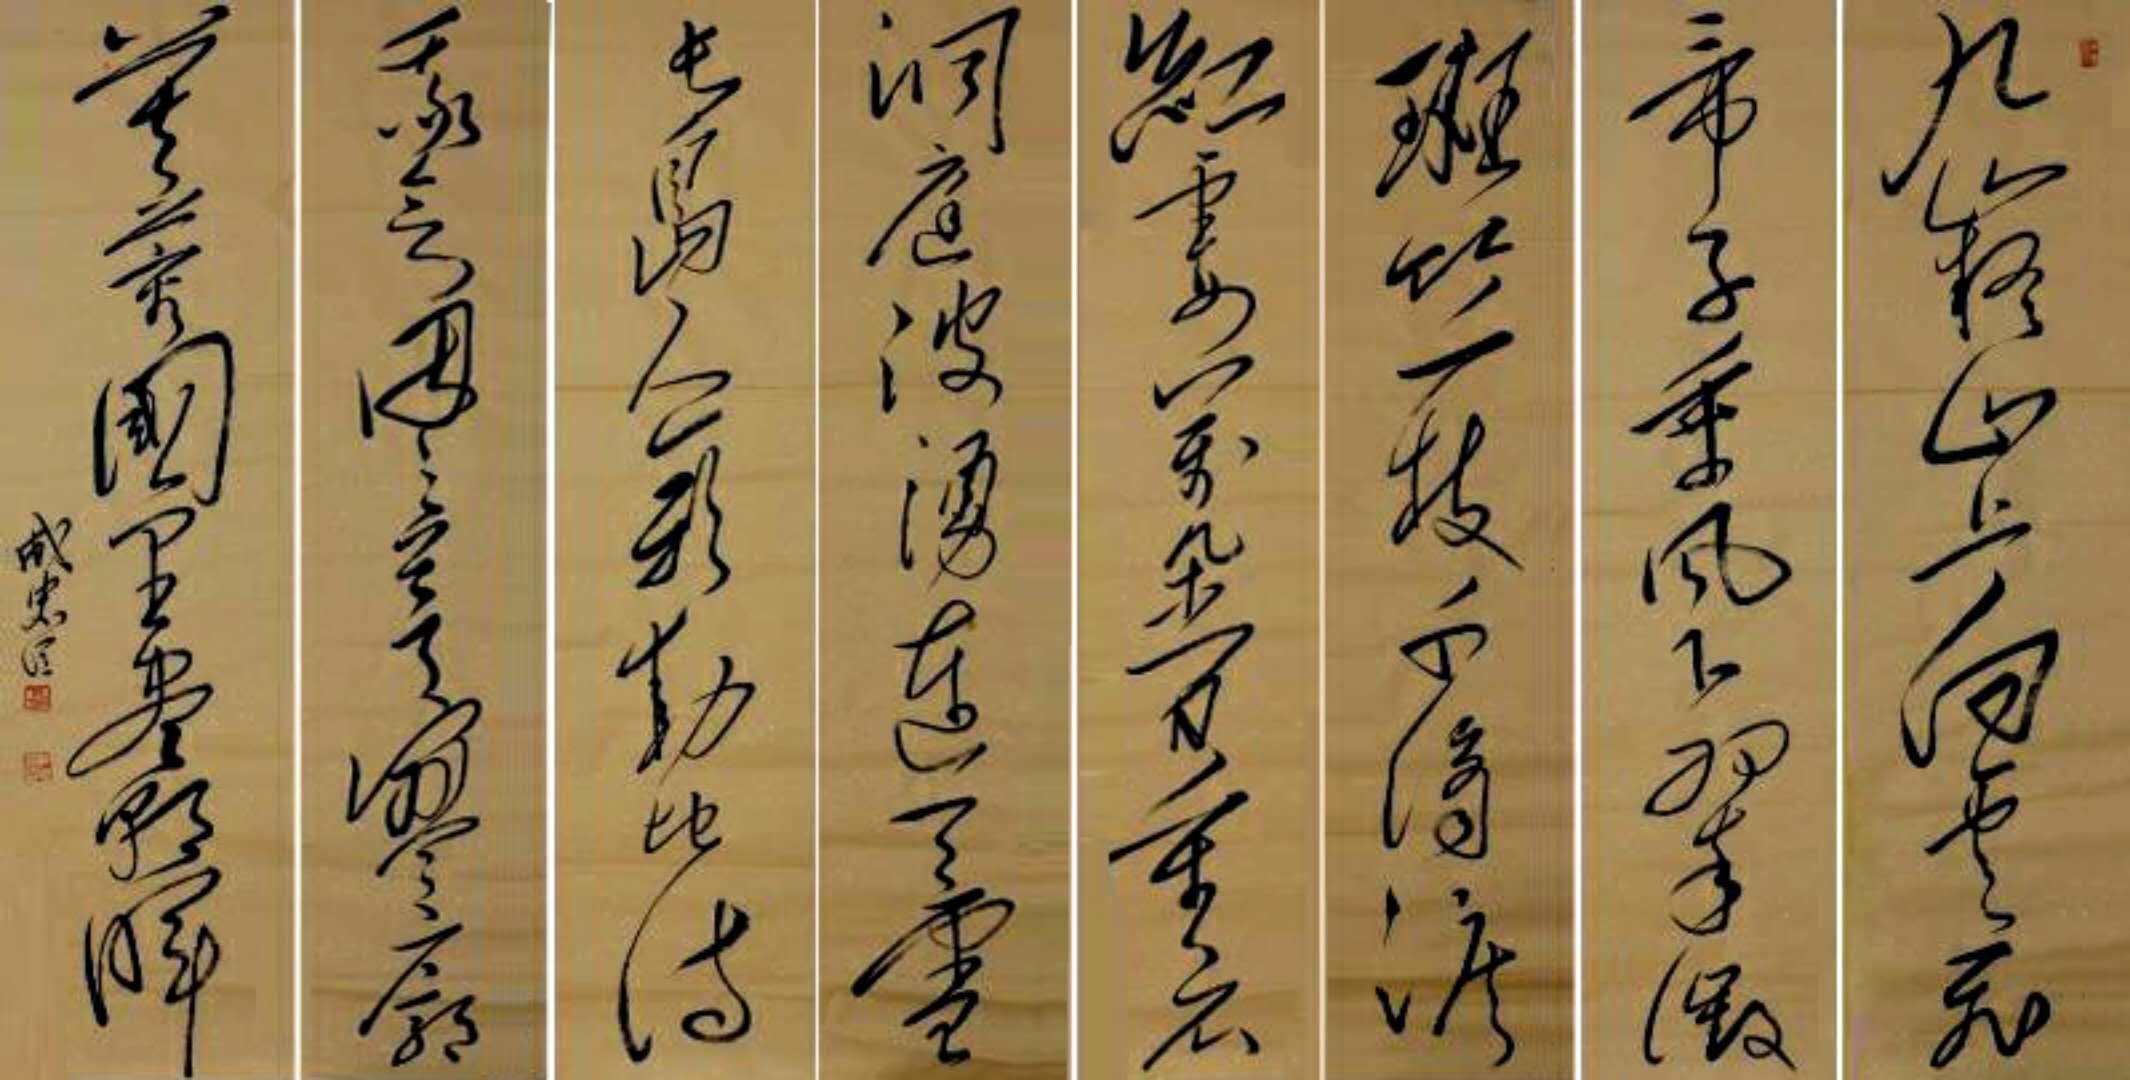 九嶷山上白雲飛
帝子乘風下翠微
斑竹一枝千滴淚
紅霞萬朵百重衣
洞庭波湧連天雪
長島人歌動地詩
我欲因之夢寥廓
芙蓉國里盡朝暉